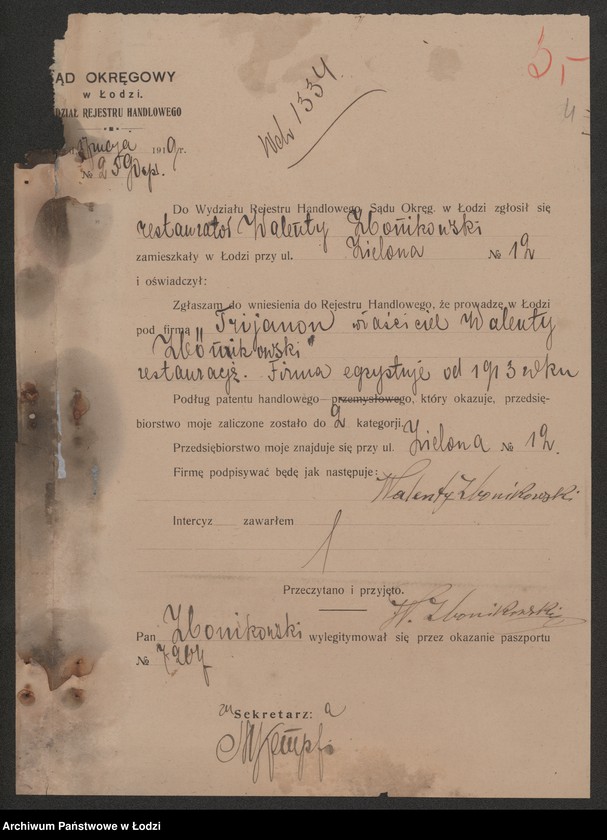 5,-
ĄD OKRĘGOWY
w Łodzi.
DZIAŁ REJESTRU HANDLOWEGO
maja 1919 r.
№ 259
1334.
Do Wydziału Rejestru Handlowego Sądu Okręg. w Łodzi zgłosił się
restaurator Walenty Zbonikowski
zamieszkały w Łodzi przy ul. Zielona № 12
i oświadczył:
Zgłaszam do wniesienia do Rejestru Handlowego, że prowadzę w Łodzi
pod firmą „Trijanon właściciel Walenty
Zbonikowski"
restaurację. Firma egzystuje od 1913 roku
Podług patentu handlowego przemysłowego, który okazuje, przedsię-
biorstwo moje zaliczone zostało do 2 kategorji.
Przedsiębiorstwo moje znajduje się przy ul. Zielona № 12.
Firmę podpisywać będę jak następuje: Walenty Zbonikowski
Intercyz zawarłem
Przeczytano i przyjęto.
W. Zbonikowski
Pan Zbonikowski wylegitymował się przez okazanie paszportu
№ 7204
za Sekretarz: a
Kempfi
Archiwum Państwowe w Łodzi